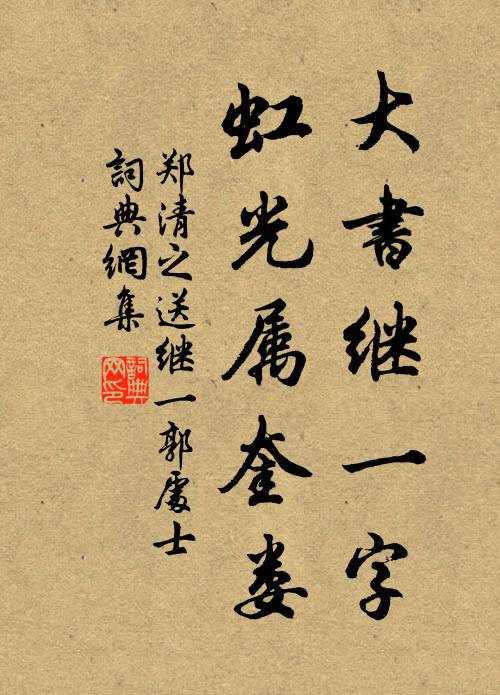 大書继一字
虹光属奎娄
郑清之送继一郭處士
詞典網集
詞典
网印